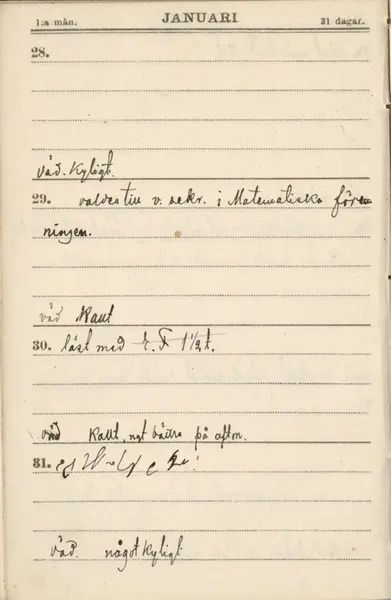 1:a mån. JANUARI 31 dagar.
28.
väd. Kyligt.
29. valdes till v. sekr. i Matematiska före-
ningen.
väd Kallt
30. läst med E. F 1½ t.
väd Kallt, ngt bättre på afton.
31.
väd. något kyligt